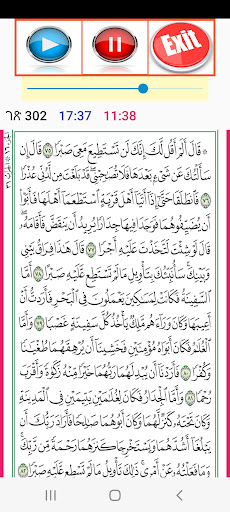 Exit
ገጽ 302 17:37 11:38
۞ قَالَ أَلَمْ أَقُل لَّكَ إِنَّكَ لَن تَسْتَطِيعَ مَعِيَ صَبْرًا ٧٥ قَالَ إِن
سَأَلْتُكَ عَن شَىْءٍۭ بَعْدَهَا فَلَا تُصَٰحِبْنِى قَدْ بَلَغْتَ مِن لَّدُنِّى عُذْرًا
٧٦ فَٱنطَلَقَا حَتَّىٰٓ إِذَآ أَتَيَآ أَهْلَ قَرْيَةٍ ٱسْتَطْعَمَآ أَهْلَهَا فَأَبَوْا۟
أَن يُضَيِّفُوهُمَا فَوَجَدَا فِيهَا جِدَارًا يُرِيدُ أَن يَنقَضَّ فَأَقَامَهُۥ
قَالَ لَوْ شِئْتَ لَتَّخَذْتَ عَلَيْهِ أَجْرًا ٧٧ قَالَ هَٰذَا فِرَاقُ بَيْنِى
وَبَيْنِكَ سَأُنَبِّئُكَ بِتَأْوِيلِ مَا لَمْ تَسْتَطِع عَّلَيْهِ صَبْرًا ٧٨ أَمَّا
ٱلسَّفِينَةُ فَكَانَتْ لِمَسَٰكِينَ يَعْمَلُونَ فِى ٱلْبَحْرِ فَأَرَدتُّ أَنْ
أَعِيبَهَا وَكَانَ وَرَآءَهُم مَّلِكٌ يَأْخُذُ كُلَّ سَفِينَةٍ غَصْبًا ٧٩ وَأَمَّا
ٱلْغُلَٰمُ فَكَانَ أَبَوَاهُ مُؤْمِنَيْنِ فَخَشِينَآ أَن يُرْهِقَهُمَا طُغْيَٰنًا
وَكُفْرًا ٨٠ فَأَرَدْنَآ أَن يُبْدِلَهُمَا رَبُّهُمَا خَيْرًا مِّنْهُ زَكَوٰةً وَأَقْرَبَ
رُحْمًا ٨١ وَأَمَّا ٱلْجِدَارُ فَكَانَ لِغُلَٰمَيْنِ يَتِيمَيْنِ فِى ٱلْمَدِينَةِ
وَكَانَ تَحْتَهُۥ كَنزٌ لَّهُمَا وَكَانَ أَبُوهُمَا صَٰلِحًا فَأَرَادَ رَبُّكَ أَن
يَبْلُغَآ أَشُدَّهُمَا وَيَسْتَخْرِجَا كَنزَهُمَا رَحْمَةً مِّن رَّبِّكَ
وَمَا فَعَلْتُهُۥ عَنْ أَمْرِى ذَٰلِكَ تَأْوِيلُ مَا لَمْ تَسْطِع عَّلَيْهِ صَبْرًا ٨٢